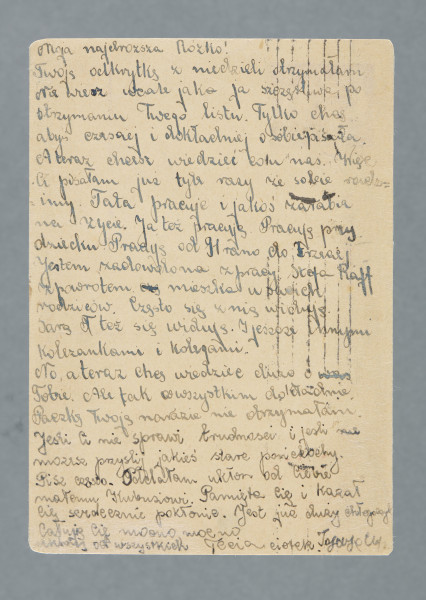 Moja najdroższa Rózko!
Twoją odkrytkę z niedzieli otrzymałam
Nie wiesz wcale jaka ja szczęśliwa po
otrzymaniu Twego listu. Tylko chcę
abyś częściej i dokładniej o sobie pisała.
A teraz chcesz wiedzieć co u nas. Więc
Ci pisałam już tyle razy że sobie radzi-
imy. Tata pracuje i jakoś zarabia
na życie. Ja też pracuję. Pracuję przy
dziecku. Pracuję od 9 rano do
Jestem zadowolona z pracy. Stefa Raff
z powrotem mieszka u swoich
rodziców. Często się z nią widuję.
Sarę też się widuję. I jeszcze z innymi
koleżankami i kolegami.
No, a teraz chcę wiedzieć dużo o
Tobie. Ale tak o wszystkim dokładnie.
Paczkę Twoją narazie nie otrzymałam.
Jeśli Ci nie sprawi trudności i jeśli
możesz przyślij jakieś stare pończochy.
Pisz często. Oddałam ukłon od Ciebie
małemu Kubusiowi. Pamięta Cię i kazał
Cię serdecznie pokłonić. Jest już duży chłopczyk
Całuję Cię mocno mocno
od wszystkich ciotek.